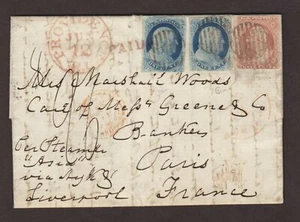 PROVIDENCE
JUL
12
PAID
ONE CENT
ONE CENT
Miss Marshall Woods
Care of Messrs Greene & Co
Bankers
Paris
France
Per Steamer
"Asia"
via N.York &
Liverpool